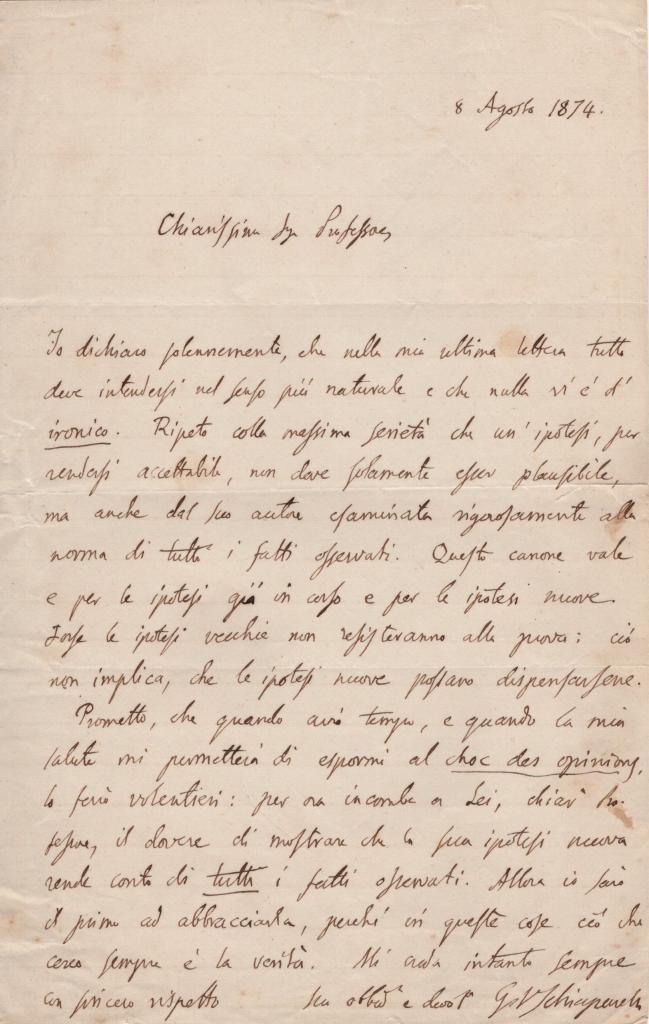 8 Agosto 1874.
Chiarissimo Sigr Professore,
Io dichiaro solennemente, che nella mia ultima lettera tutto
deve intendersi nel senso più naturale e che nulla vi è d'
ironico. Ripeto colla massima serietà che un' ipotesi, per
rendersi accettabile, non deve solamente esser plausibile,
ma anche dal suo autore esaminata rigorosamente alla
norma di tutti i fatti osservati. Questo canone vale
e per le ipotesi già in corso e per le ipotesi nuove.
Forse le ipotesi vecchie non resisteranno alla prova: ciò
non implica, che le ipotesi nuove possano dispensarsene.
Prometto, che quando avrò tempo, e quando la mia
salute mi permetterà di espormi al choc des opinions,
lo farò volentieri: per ora incombe a Lei, chiarº Pro-
fessore, il dovere di mostrare che la sua ipotesi nuova
rende conto di tutti i fatti osservati. Allora io sarò
il primo ad abbracciarla, perché in queste cose ciò che
cerco sempre è la verità. Mi creda intanto sempre
con sincero rispetto suo obbº e devotº G. V. Schiaparelli